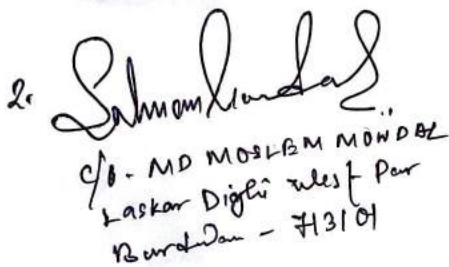 2. Salman Mondal
C/o - MD MOSLEM MONDAL
Laskar Dighi West Par
Burdwan - 713101